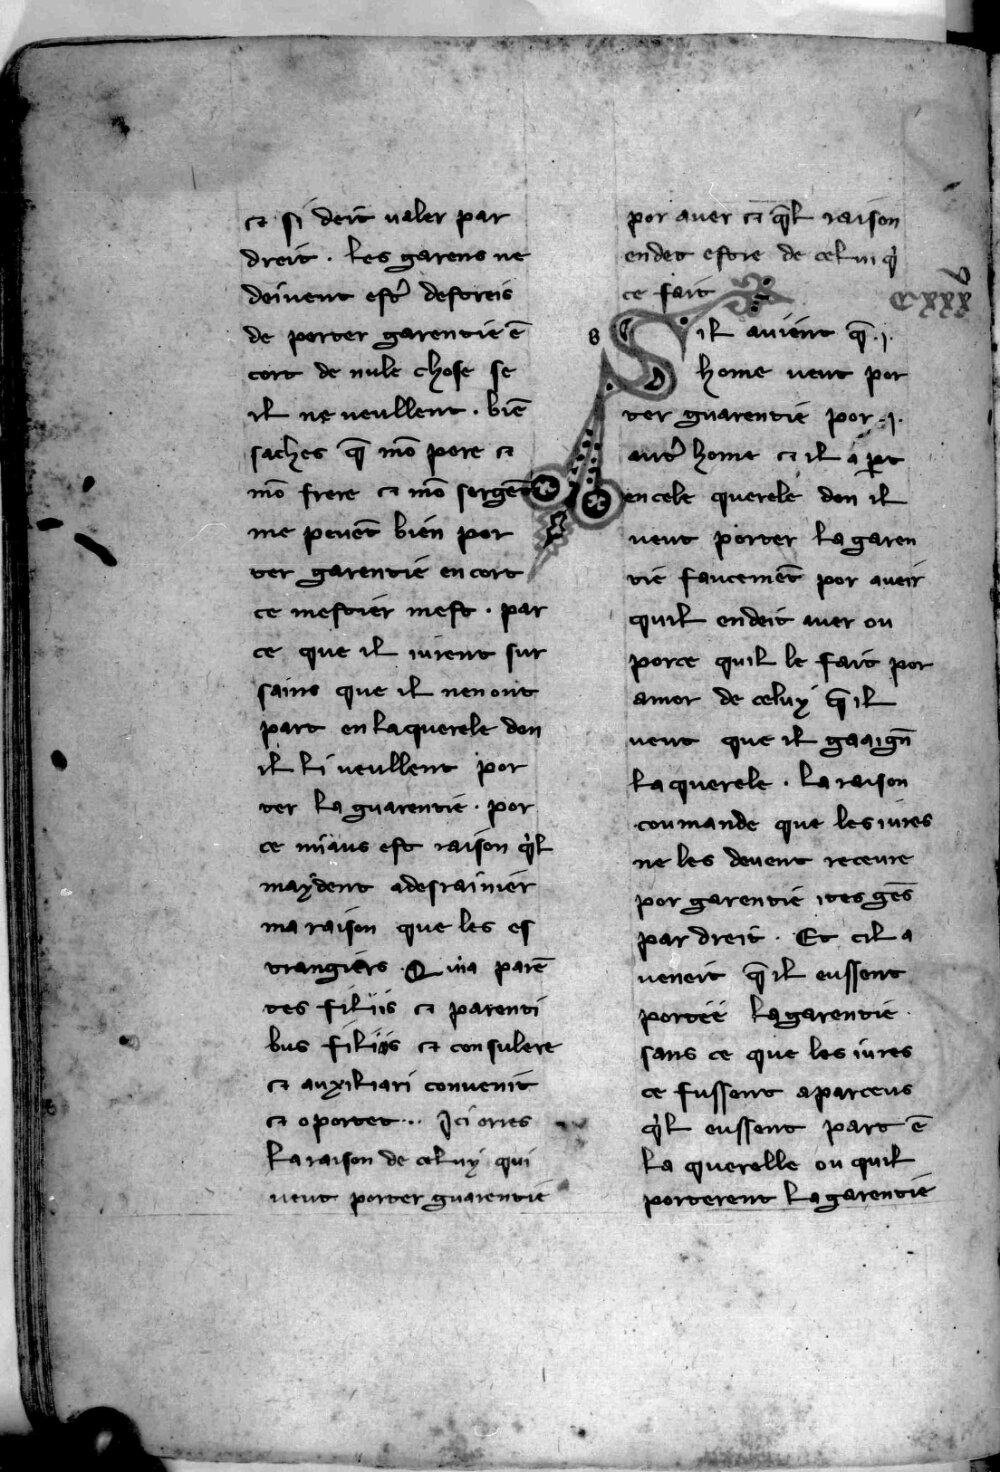 ⁊ si deit ualer par
dreit . les garens ne
doiuent estr̉ destreis
de porter garentie ē
cort de nule chose se
il ne ueullent . biē
saches q̄ mō pere ⁊
mō frere ⁊ mō sergēt
me peuēt bien por
ter garentie en cort
ce mestier mest . par
ce que il iurent sur
sains que il nen ont
part en la querele don
il li ueullent por
ter la guarentie . por
ce miaus est raison q̉l
maydent a desrainier
ma raison que les es
trangiers . Quia parē
tes filiis ⁊ parenti
bus filiis ⁊ consulere
⁊ auxiliari conuenit
⁊ oportet .. Ici ores
la raison de celuy qui
ueut porter guarentie
por auer ⁊ q̄l raison
en det estre de celui q̉
ce fait
CXXX
Sil auient q̄ .j.
home ueut por
ter guarentie por .j.
autr̉ home ⁊ il a ꝑt
en cele querele don il
ueut porter la garen
tie faucemēt por aueir
quil en deit auer ou
por ce quil le fait por
amor de celuy q̄ il
ueut que il gaaign̄
la querele . la raison
coumande que les iures
ne les deuent receure
por garentie ites gēs
par dreit . Et cil a
uencit q̄ il eussent
portee la garentie
sans ce que les iures
ce fussent aparceus
q̉l eussent part ē
la querelle ou quil
porterent la garentie